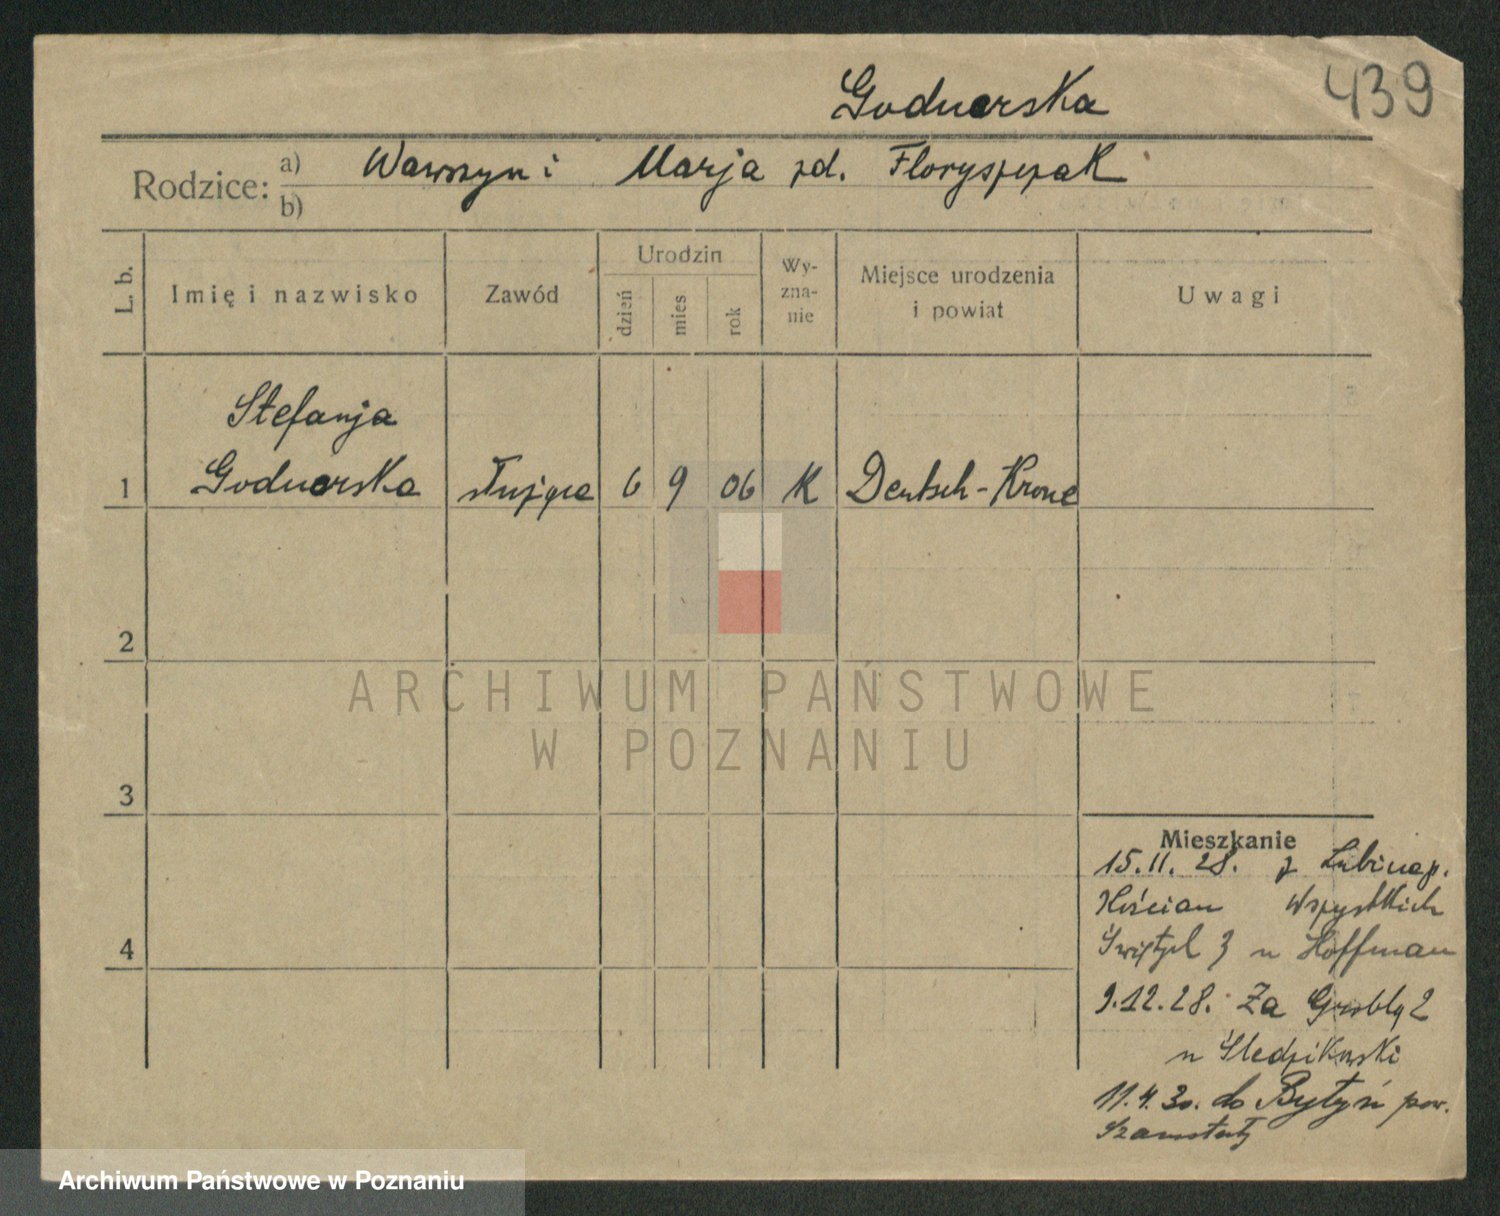 439
Godnerska
Rodzice: a) Wawrzyn i Marja zd. Floryszczak
b)
L. b.
Imię i nazwisko
Zawód
Urodzin
dzień
mies
rok
Wy-
zna-
nie
Miejsce urodzenia
i powiat
Uwagi
Stefanja
1 Godnerska służąca 6 9 06 K Deutsch-Krone
2
ARCHIWUM PAŃSTWOWE
W POZNANIU
3
Mieszkanie
15.11.28. z Lubinia p.
Kościan Wszystkich
Świętych 3 u Hoffman
4
9.12.28. Za Groblą 2
u Śledzikowski
11.4.30. do Bytyń pow.
Szamotuły
Archiwum Państwowe w Poznaniu